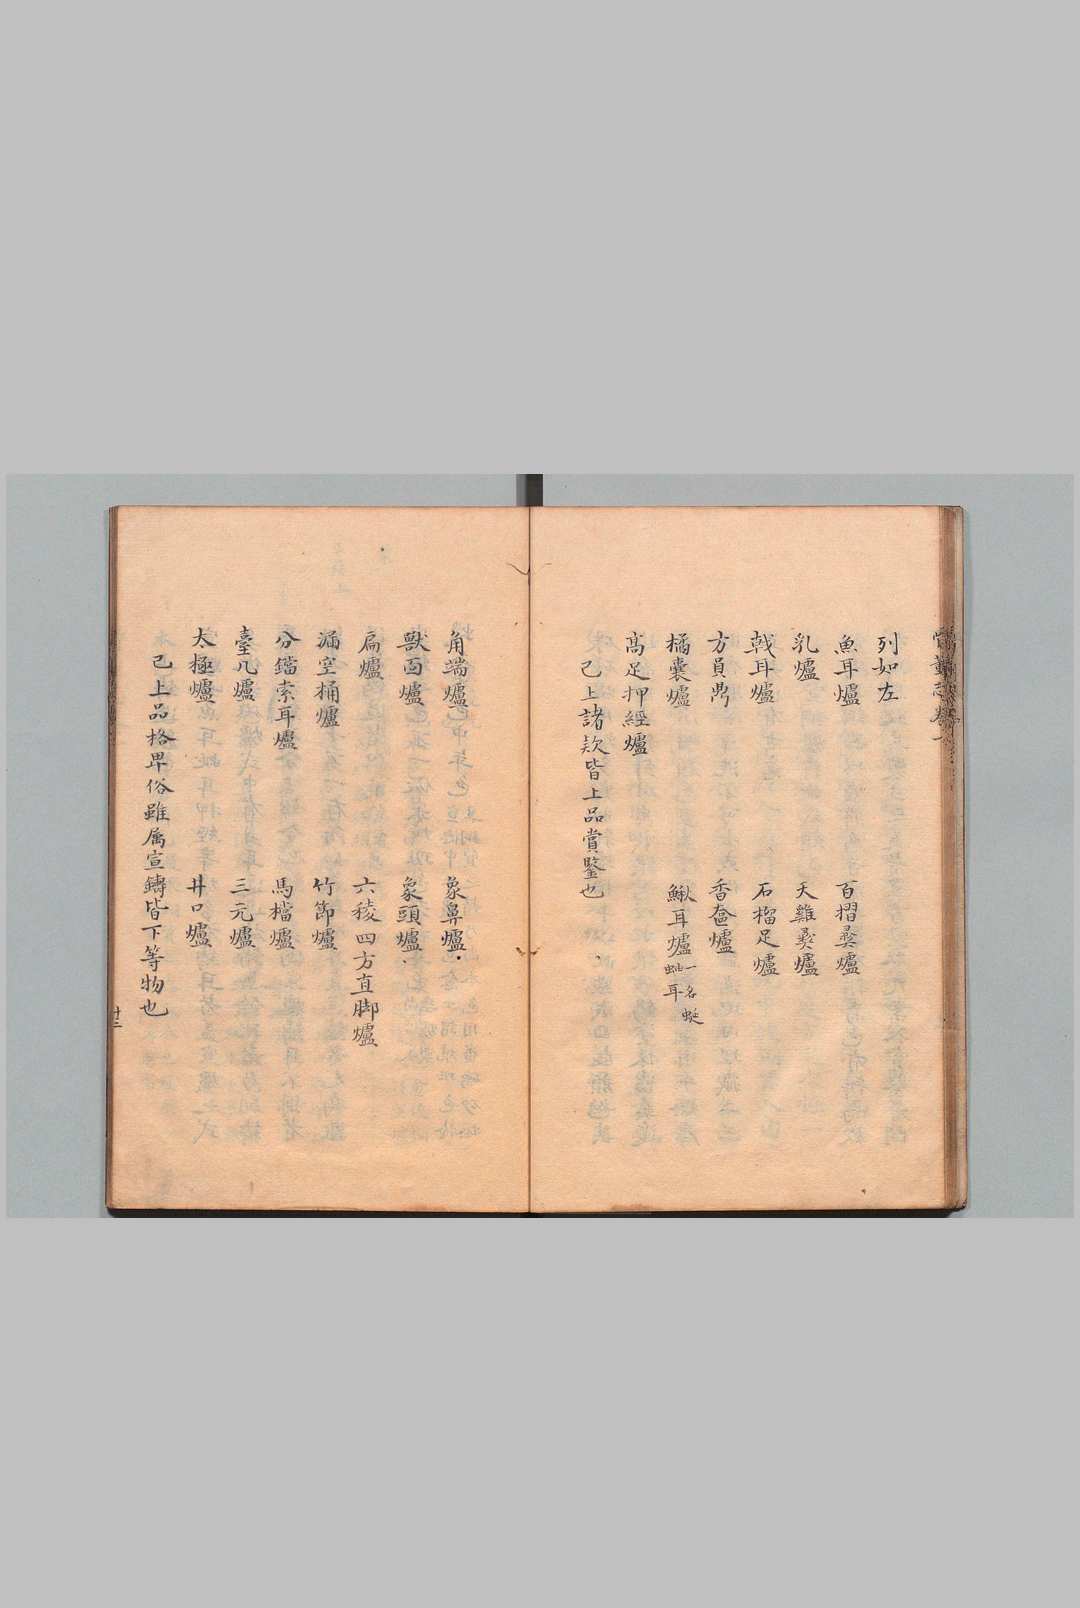 列如左
魚耳爐 百摺彞爐
乳爐 天雞彞爐
戟耳爐 石榴足爐
方員鼎 香奩爐
橘囊爐 鰍耳爐 一名蜒蚰耳
高足押經爐
已上諸款皆上品賞鑒也
角端爐 象鼻爐
獸面爐 象頭爐
扁爐 六稜四方直脚爐
漏空桶爐 竹節爐
分鐺索耳爐 馬檔爐
臺几爐 三元爐
太極爐 井口爐
已上品格卑俗雖属宣鑄皆下等物也
廿三